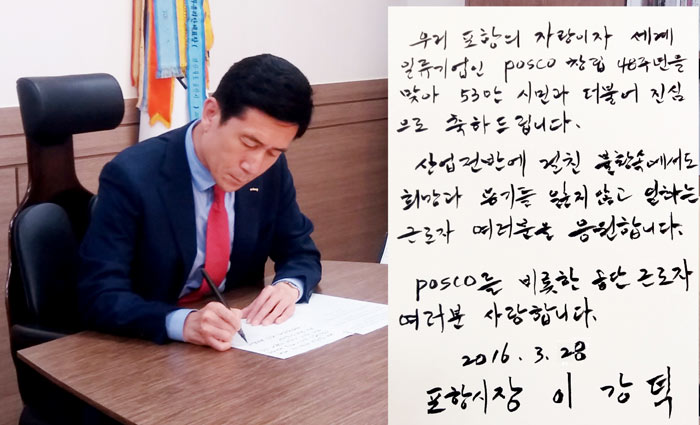 우리 포항의 자랑이자 세계
일류기업인 posco 창립 48주년을
맞아 53만 시민과 더불어 진심
으로 축하드립니다.
산업전반에 걸친 불황속에서도
희망과 용기를 잃지않고 일하는
근로자 여러분을 응원합니다.
posco를 비롯한 공단 근로자
여러분 사랑합니다.
2016. 3. 28
포항시장 이 강 덕